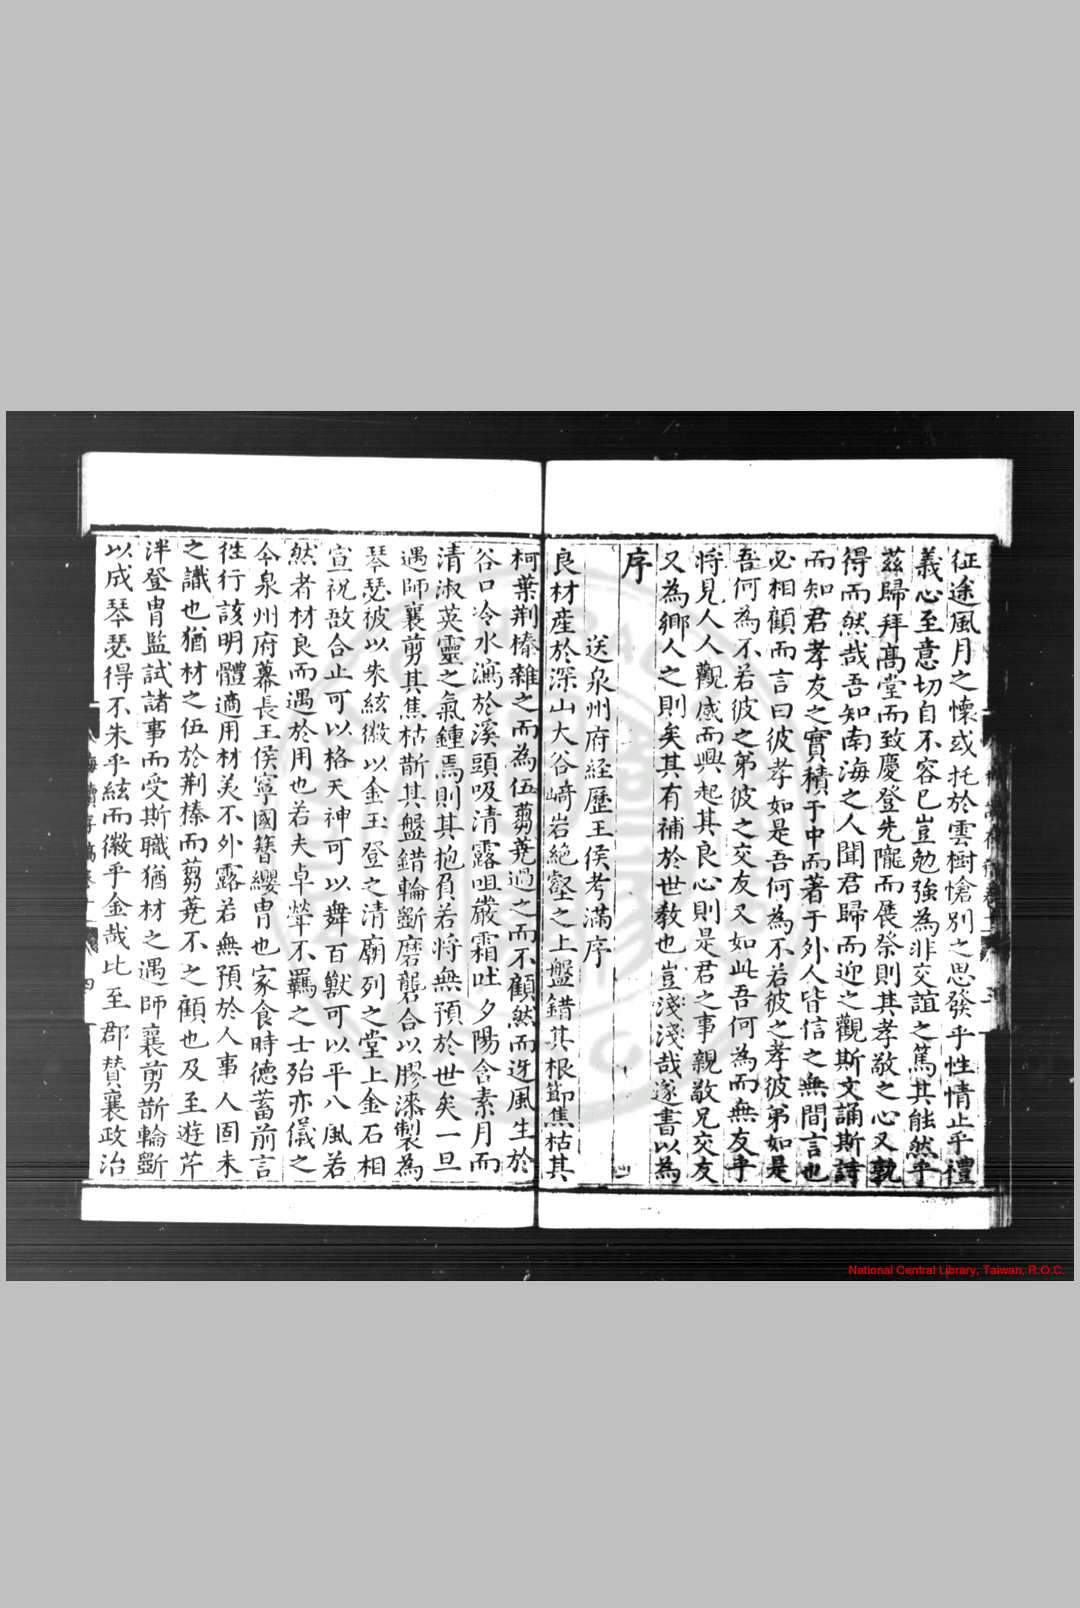 征途風月之懷或托於雲樹愴別之思發乎性情止乎禮
義心至意切自不容已豈勉強為非交誼之篤其能然乎
茲歸拜高堂而致慶登先隴而展祭則其孝敬之心又孰
得而然哉吾知南海之人聞君歸而迎之觀斯文誦斯詩
而知君孝友之實積于中而著于外人皆信之無間言也
必相顧而言曰彼孝如是吾何為不若彼之孝彼弟如是
吾何為不若彼之弟彼之交友又如此吾何為而無友乎
將見人人觀感而興起其良心則是君之事親敬兄交友
又為鄉人之則矣其有補於世敎也豈淺淺哉遂書以為
序
送泉州府經歷王侯考滿序
良材產於深山大谷﨑岩絕壑之上盤錯其根節焦枯其
柯葉荆榛雜之而為伍蒭蕘過之而不顧然而迕風生於
谷口冷水瀉於溪頭吸清露咀嚴霜吐夕陽含素月而
清淑英靈之氣鍾焉則其抱負若將無預於世矣一旦
遇師襄剪其焦枯斮其盤錯輪斵磨礱合以膠漆製為
琴瑟被以朱絃徽以金玉登之清廟列之堂上金石相
宣祝敔合止可以格天神可以舞百獸可以平八風若
然者材良而遇於用也若夫卓犖不羈之士殆亦儀之
今泉州府幕長王侯寧國簪纓冑也家食時德蓄前言
徃行該明體適用材美不外露若無預於人事人固未
之識也猶材之伍於荆榛而蒭蕘不之顧也及至遊芹
泮登冑監試諸事而受斯職猶材之遇師襄剪斮輪斵
以成琴瑟得不朱乎絃而徽乎金哉比至郡贊襄政治
四
National Central Library, Taiwan, R.O.C.